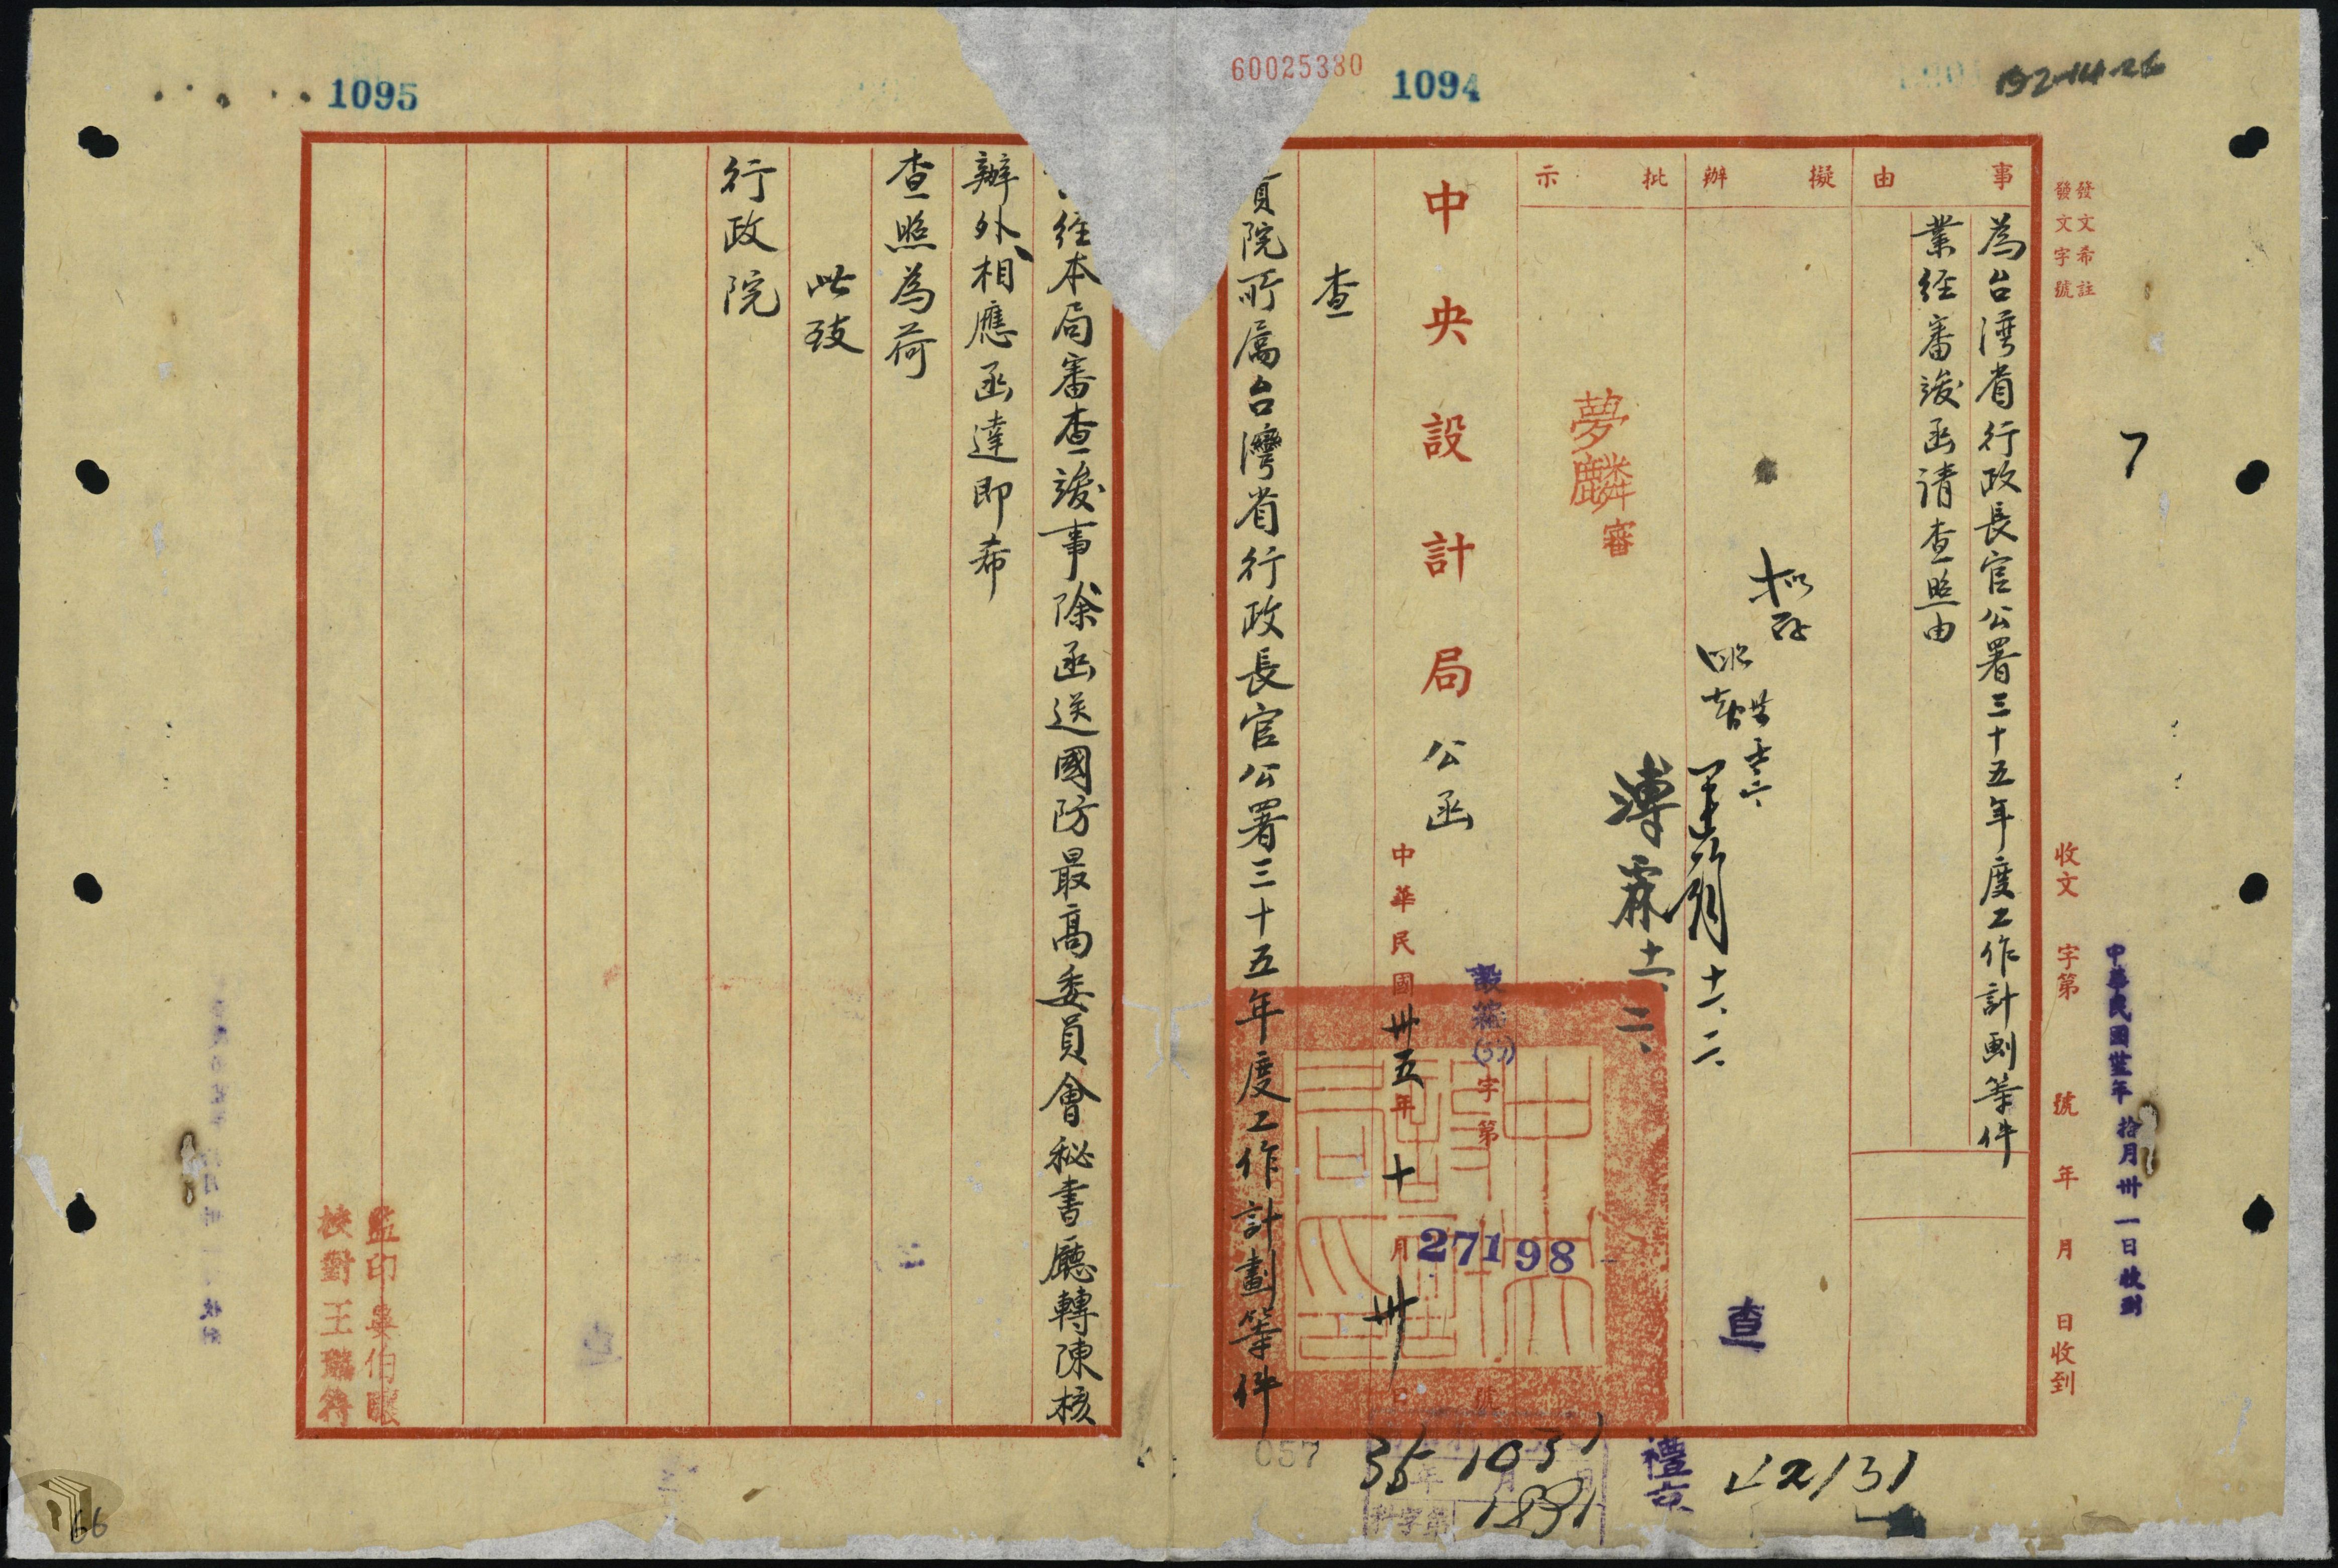 1095
60025380
1094
發文希註
發文字號
7
收文 字第 號 年 月 日收到
中華民國卅五年拾月卅一日收到
事由
為台灣省行政長官公署三十五年度工作計劃等件
業經審竣函請查照由
擬辦
擬存
十一、二、
查
批示
夢麟
審
溥霖
十一、二、
中央設計局公函
字第27198號
中華民國卅五年十月卅日
查
貴院所屬台灣省行政長官公署三十五年度工作計劃等件
經本局審查竣事除函送國防最高委員會秘書廳轉陳核
辦外、相應函達即希
查照為荷
此致
行政院
監印吳伯
校對王
057
35 10 31
1891
禮京
2/31
66